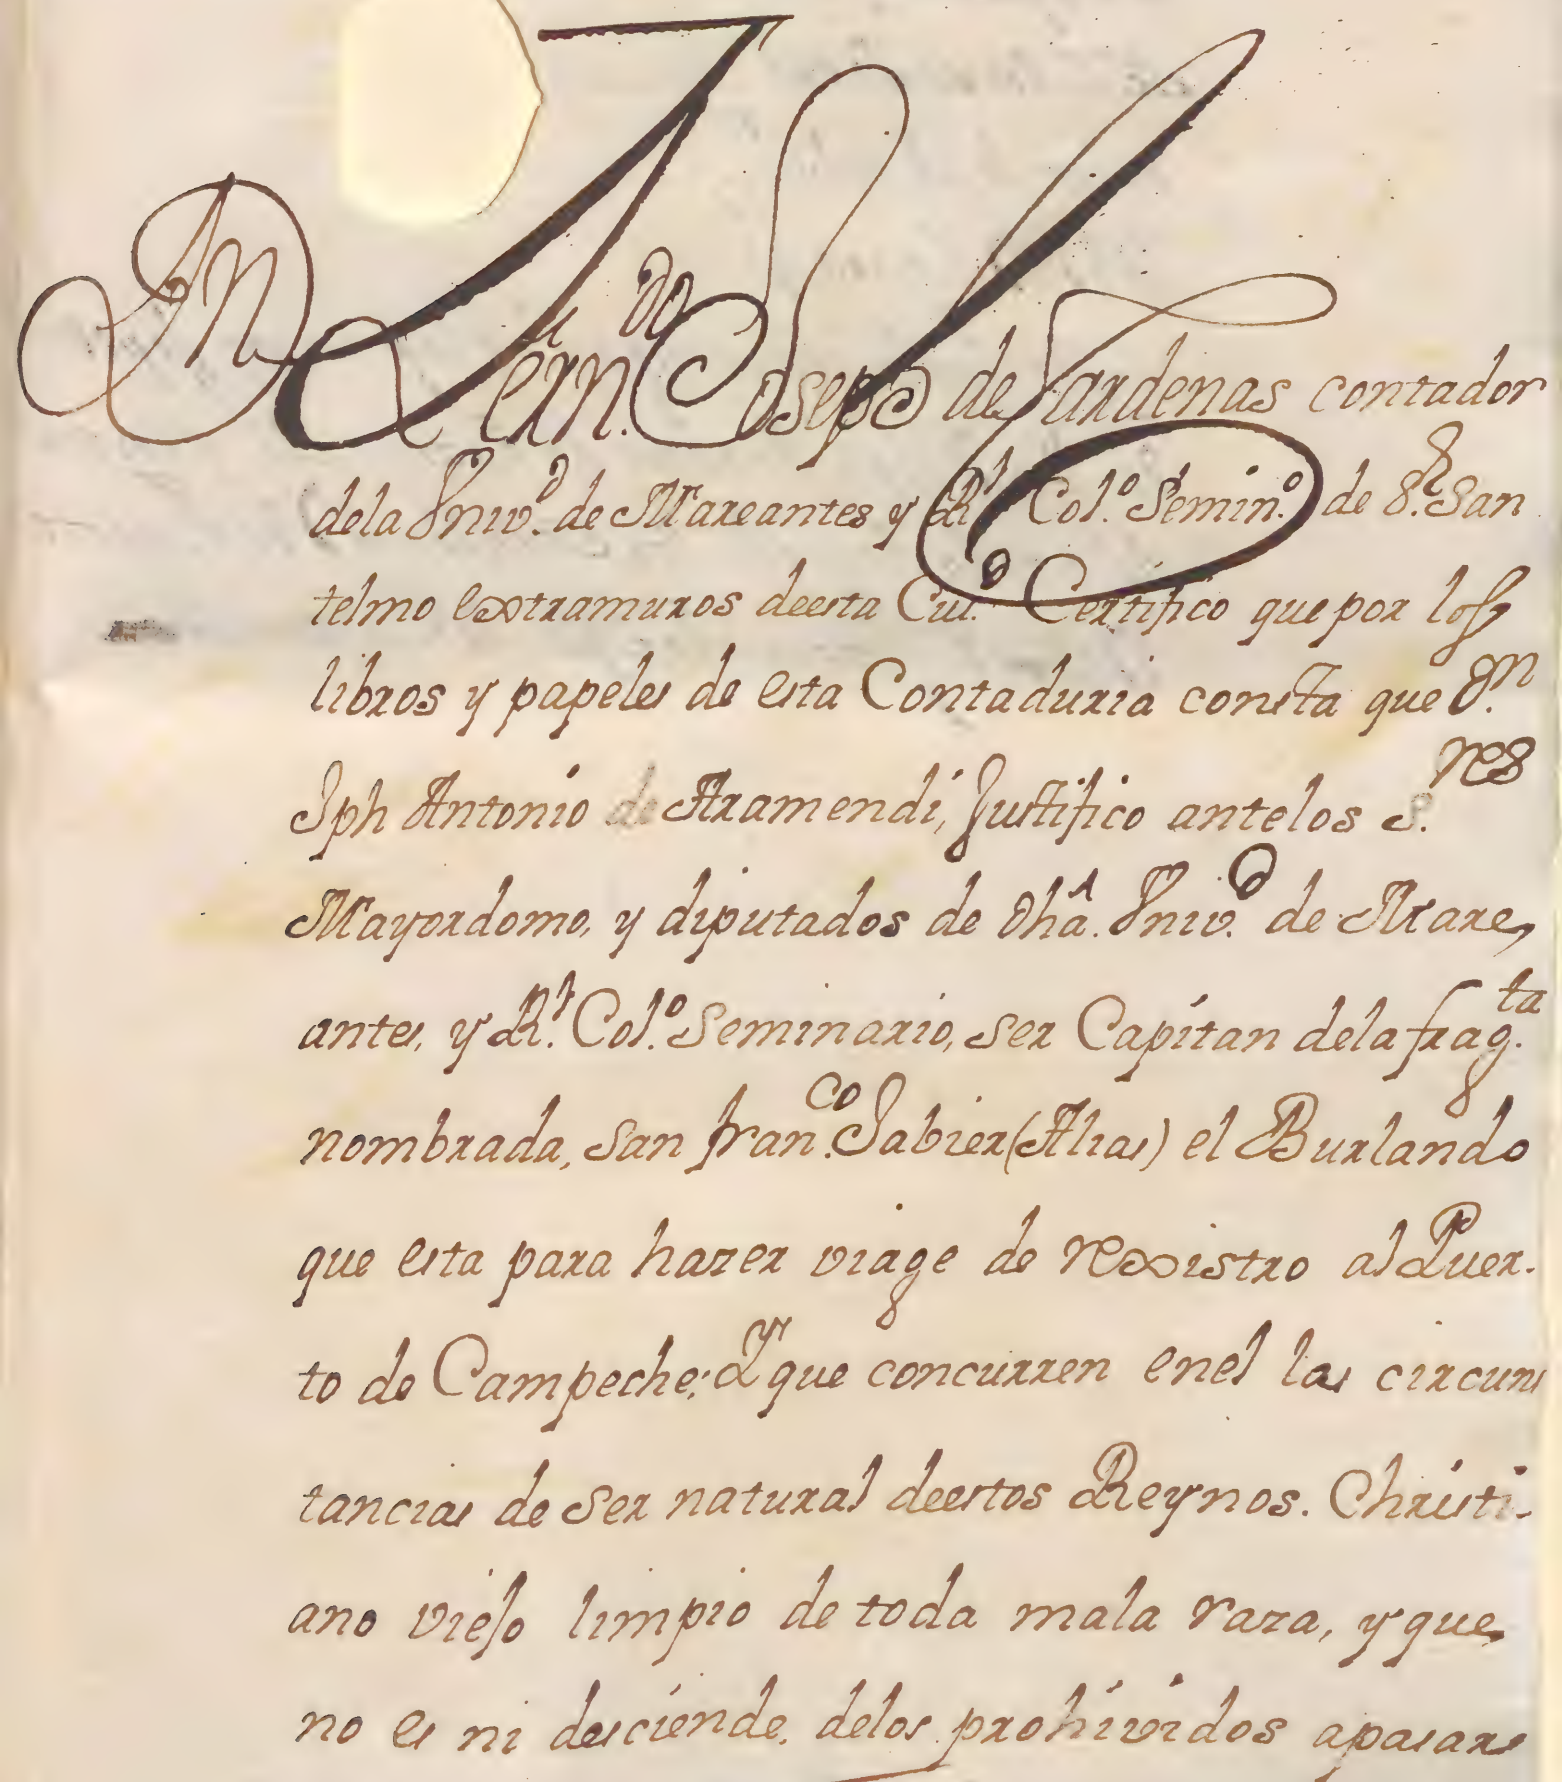 Dn Fern.do Joseph de Cardenas contador
dela Vniv.d de Mareantes y Rl Col.o Semin.o de S.r San
telmo extramuros deesta Ciu.d Certifico que por los
libros y papeles de esta Contaduria consta que D.n
Jph Antonio de Aramendi, Justifico antelos S.res
Mayordomo, y diputados de dha. Vniv.d de Mare,
antes, y Rl. Col.o Seminario, ser Capitan dela frag.ta
nombrada, San fran.co Jabier (Alias) el Burlando
que esta para hazer viage de rexistro al Puer.
to de Campeche; Y que concurren enel las circuns
tancias de ser natural deestos Reynos. Christi-
ano viejo limpio de toda mala raza, y que
no es ni desciende. delos prohividos apasar